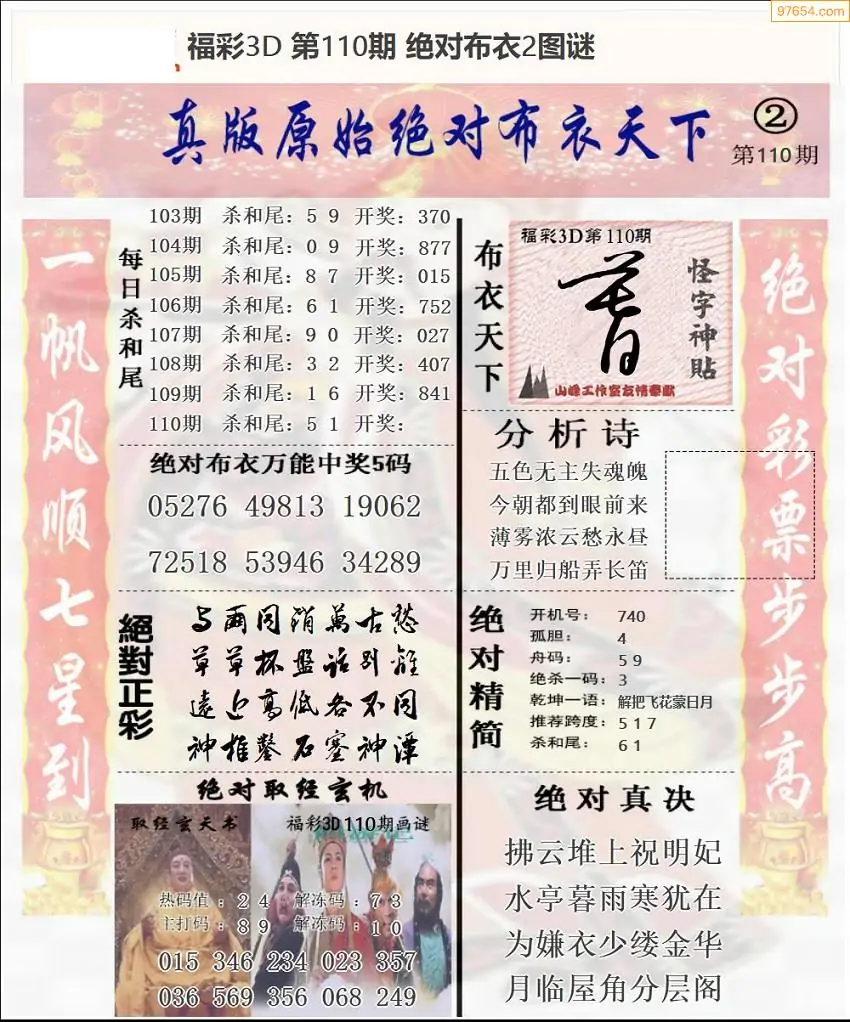 97654.com
福彩3D 第110期 绝对布衣2图谜
真版原始绝对布衣天下
②
第110期
一帆风顺七星到
每日杀和尾
103期 杀和尾：5 9 开奖：370
104期 杀和尾：0 9 开奖：877
105期 杀和尾：8 7 开奖：015
106期 杀和尾：6 1 开奖：752
107期 杀和尾：9 0 开奖：027
108期 杀和尾：3 2 开奖：407
109期 杀和尾：1 6 开奖：841
110期 杀和尾：5 1 开奖：
绝对布衣万能中奖5码
05276 49813 19062
72518 53946 34289
絕對正彩
与尔同消萬古愁
草草杯盤话别離
遠近高低各不同
神椎鑿石塞神潭
绝对取经玄机
取经玄天书
福彩3D110期画谜
热码值：2 4 解冻码：7 3
主打码：8 9 解冻码：1 0
015 346 234 023 357
036 569 356 068 249
布衣天下
福彩3D第110期
怪字神贴
山峰工作室友情奉献
分析诗
五色无主失魂魄
今朝都到眼前来
薄雾浓云愁永昼
万里归船弄长笛
绝对精简
开机号：740
孤胆：4
舟码：5 9
绝杀一码：3
乾坤一语：解把飞花蒙日月
推荐跨度：5 1 7
杀和尾：6 1
绝对真决
拂云堆上祝明妃
水亭暮雨寒犹在
为嫌衣少缕金华
月临屋角分层阁
绝对彩票步步高